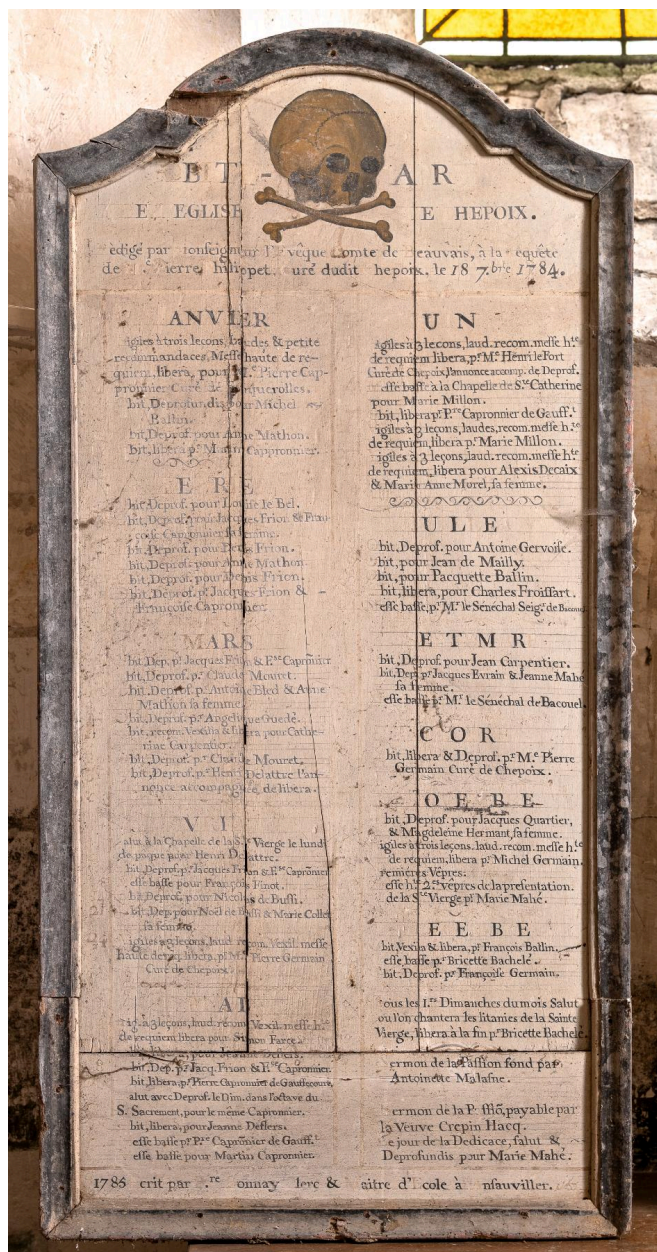 ET- AR
E EGLISE E HEPOIX.
edigé par onseigneur l' vêque omte de eauvais, à la equête
de ierre hurepet uré dudit hepoix. le 18 7.bre 1784.
ANVIER
igiles à trois leçons, laudes & petite
recommandaces, Messe haute de re-
quiem, libera, pour M.e Pierre Cap-
pronnier Curé de querolles.
bit, Deprofundis pour Michel
Ballin.
bit, Deprof. pour Anne Mathon.
bit, libera p.r Martin Cappronnier.
E RE
bit, Deprof. pour Louise le Bel.
bit, Deprof. pour Jacques Frion & Fran-
çoise Capronnier sa femme.
bit, Deprof. pour Denis Frion.
bit, Deprof. pour Anne Mathon.
bit, Deprof. pour Denis Frion.
bit, Deprof. pour Jacques Frion &
Françoise Capronnier.
MARS
bit, Dep. p.r Jacques Frion & F.se Caprõnier
bit, Deprof. p.r Claude Mouret.
bit, Deprof. p.r Antoine Bled & Anne
Mathon sa femme.
bit, Deprof. p.r Angelique Guedé.
bit, recom. Vexilla & libera pour Cathe-
rine Carpentier.
bit, Deprof. p.r Claude Mouret.
bit, Deprof. p.r Henri Delattre l'an-
nonce accompagnée, de libera.
V I
alut à la Chapelle de la S.te Vierge le lundi
de paque pour Henri Delattre.
bit, Deprof. p.r Jacques Frion & F.se Caprõnier
esse basse pour François Finot.
bit, Deprof. pour Nicolas de Bussi.
bit, Dep. pour Noël de Bussi & Marie Collet
sa femme.
igiles à 3 leçons, laud. recom. Vexil. messe
haute de req. libera, p.r M.e Pierre Germain
Curé de Chepoix.
AI
ig. à 3 leçons, laud. recom. Vexil. messe h.te
de requiem libera pour Simon Farce.
bit, Dep. p.r Jacq. Frion & F.se Capronnier
bit, libera, p.r Pierre Capronnier de Gauffecourt,
alut avec Deprof. le Dim. dans l'octave du
S. Sacrement, pour le même Capronnier.
bit, libera, pour Jeanne Deflers.
esse basse p.r P.re Caprõnier de Gauff.t
esse basse pour Martin Capronnier.
U N
igiles à 3 lecons, laud. recom. messe h.te
de requiem libera, p.r M.e Henri le Fort
Curé de Chepoix, l'annonce accomp. de Deprof.
esse basse à la Chapelle de S.te Catherine
pour Marie Millon.
bit, libera p.r P.re Capronnier de Gauff.t
igiles à 3 leçons, laudes, recom. messe h.te
de requiem, libera p.r Marie Millon.
igiles à 3 leçons, laud. recom. messe h.te
de requiem, libera pour Alexis Decaix
& Marie Anne Morel, sa femme.
U L E
bit, Deprof. pour Antoine Gervoise.
bit, pour Jean de Mailly.
bit, pour Pacquette Ballin.
bit, libera, pour Charles Froissart.
esse basse, p.r M.r le Sénéchal Seig.r de Bacouel
E T M R
bit, Deprof. pour Jean Carpentier.
bit, Dep. p.r Jacques Evrain & Jeanne Mahé
sa femme.
esse basse p.r M.r le Sénéchal de Bacouel.
C O R
bit, libera & Deprof. p.r M.e Pierre
Germain Curé de Chepoix.
O E BE
bit, Deprof. pour Jacques Quartier,
& Magdeleine Hermant, sa femme.
igiles à trois leçons. laud. recom. messe h.te
de requiem, libera p.r Michel Germain.
remières Vêpres.
esse h.te 2.es vêpres de la presentation.
de la S.te Vierge p.r Marie Mahé.
E E BE
bit, Vexila & libera, p.r François Ballin.
esse basse p.r Bricette Bachelé.
bit. Deprof. p.r Françoise Germain.
ous les 1.ers Dimanches du mois Salut
ou l'on chantera les litanies de la Sainte
Vierge, libera à la fin p.r Bricette Bachelé.
ermon de la Passion fond par
Antoinette Malasne.
ermon de la P. ssiõ, payable par
la Veuve Crepin Hacq.
e jour de la Dedicace, salut &
Deprofundis pour Marie Mahé.
1785 crit par .re onnay lerc & aitre d' cole à nsauviller.